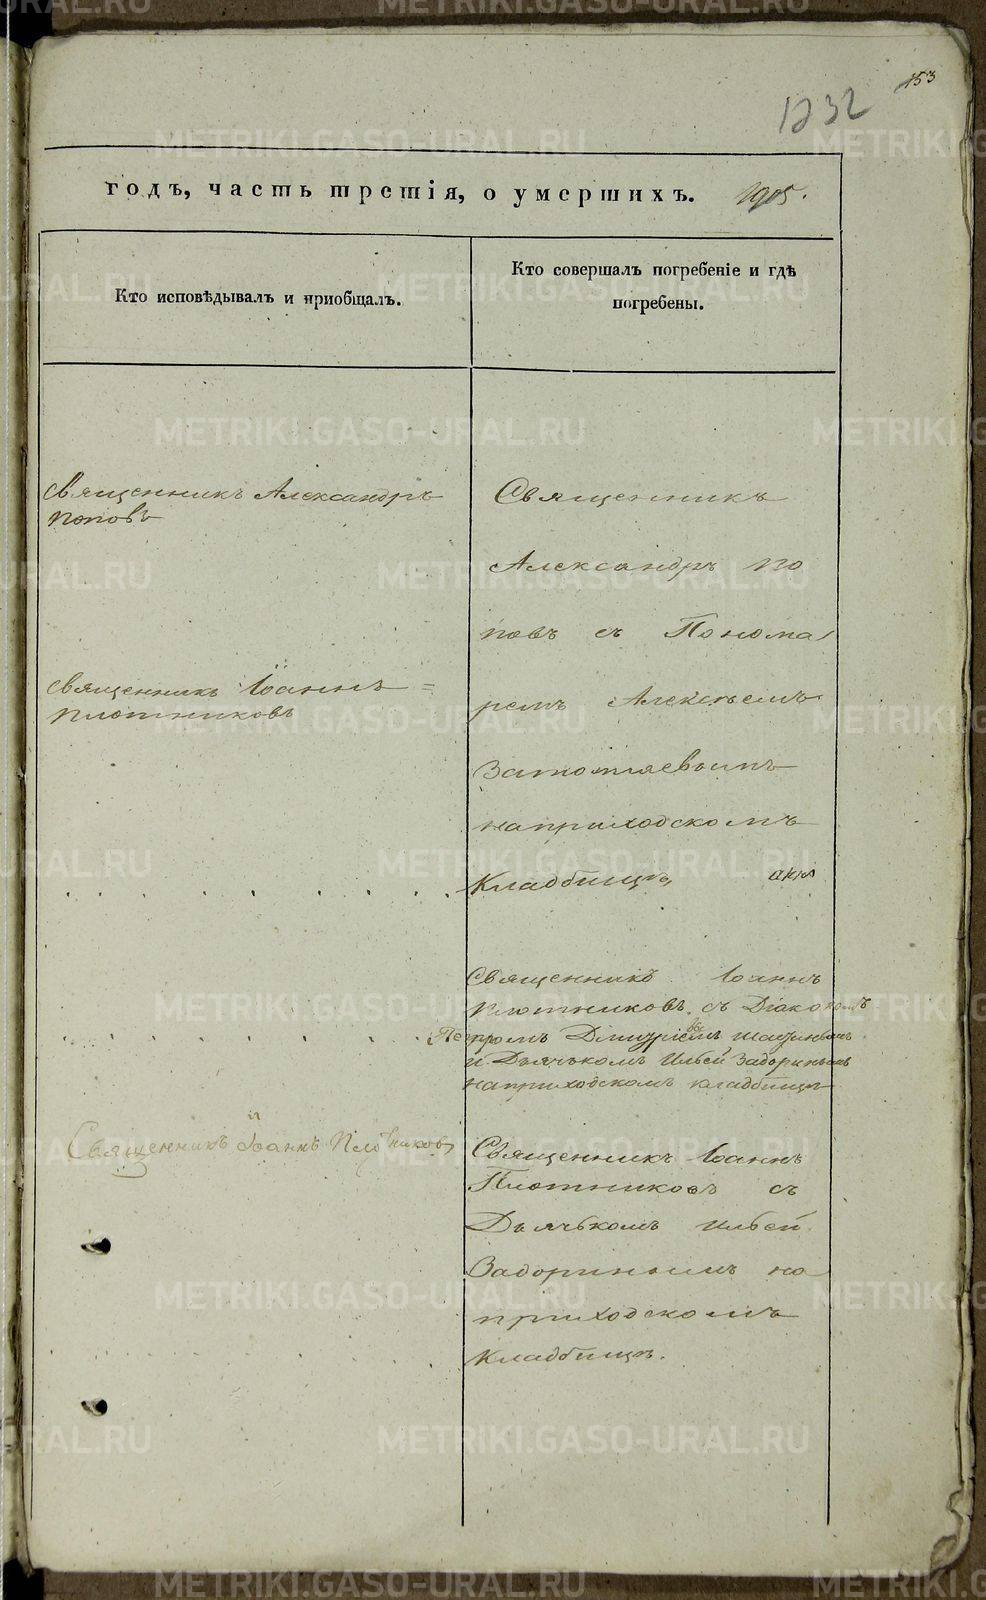 153
1232
годъ, часть третія, о умершихъ. 1905.
Кто исповѣдывалъ и пріобщалъ.
Кто совершалъ погребеніе и гдѣ
погребены.
Священникъ Александръ
Поповъ
Священникъ Іоаннъ =
Плотниковъ
Священникъ Іоаннъ Плотниковъ
Священникъ
Александръ По
повъ съ Понома
ремъ Алексѣемъ
на приходскомъ
Кладбищѣ
Священникъ Іоаннъ
Плотниковъ съ Діакономъ
Петромъ
и Дьячькомъ Ильей Задоринымъ
на приходскомъ кладбищѣ
Священникъ Іоаннъ
Плотниковъ съ
Дьячькомъ Ильей
Задоринымъ на
приходскомъ
Кладбищѣ.
METRIKI.GASO-URAL.RU